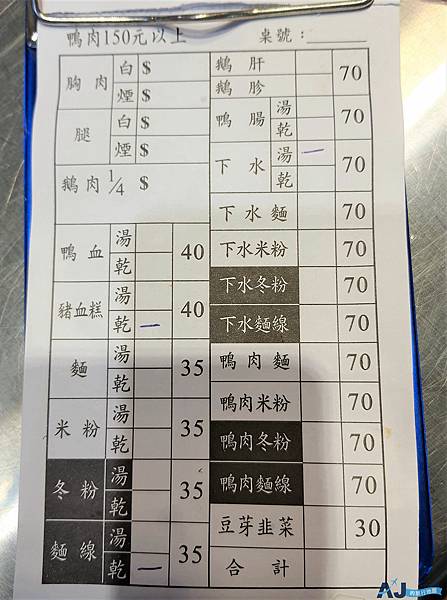 鴨肉150元以上 桌號：
胸肉 白 $
煙 $
腿 白 $
煙 $
鵝肉 1/4 $
鴨血 湯 40
乾
豬血糕 湯 40
乾 一
麵 湯 35
乾
米粉 湯 35
乾
冬粉 湯 35
乾
麵線 湯 35
乾 一
鵝肝 70
鵝胗
鴨腸 湯 70
乾
下水 湯 一 70
乾
下水麵 70
下水米粉 70
下水冬粉 70
下水麵線 70
鴨肉麵 70
鴨肉米粉 70
鴨肉冬粉 70
鴨肉麵線 70
豆芽韭菜 30
合計
AJ
的旅行地圖